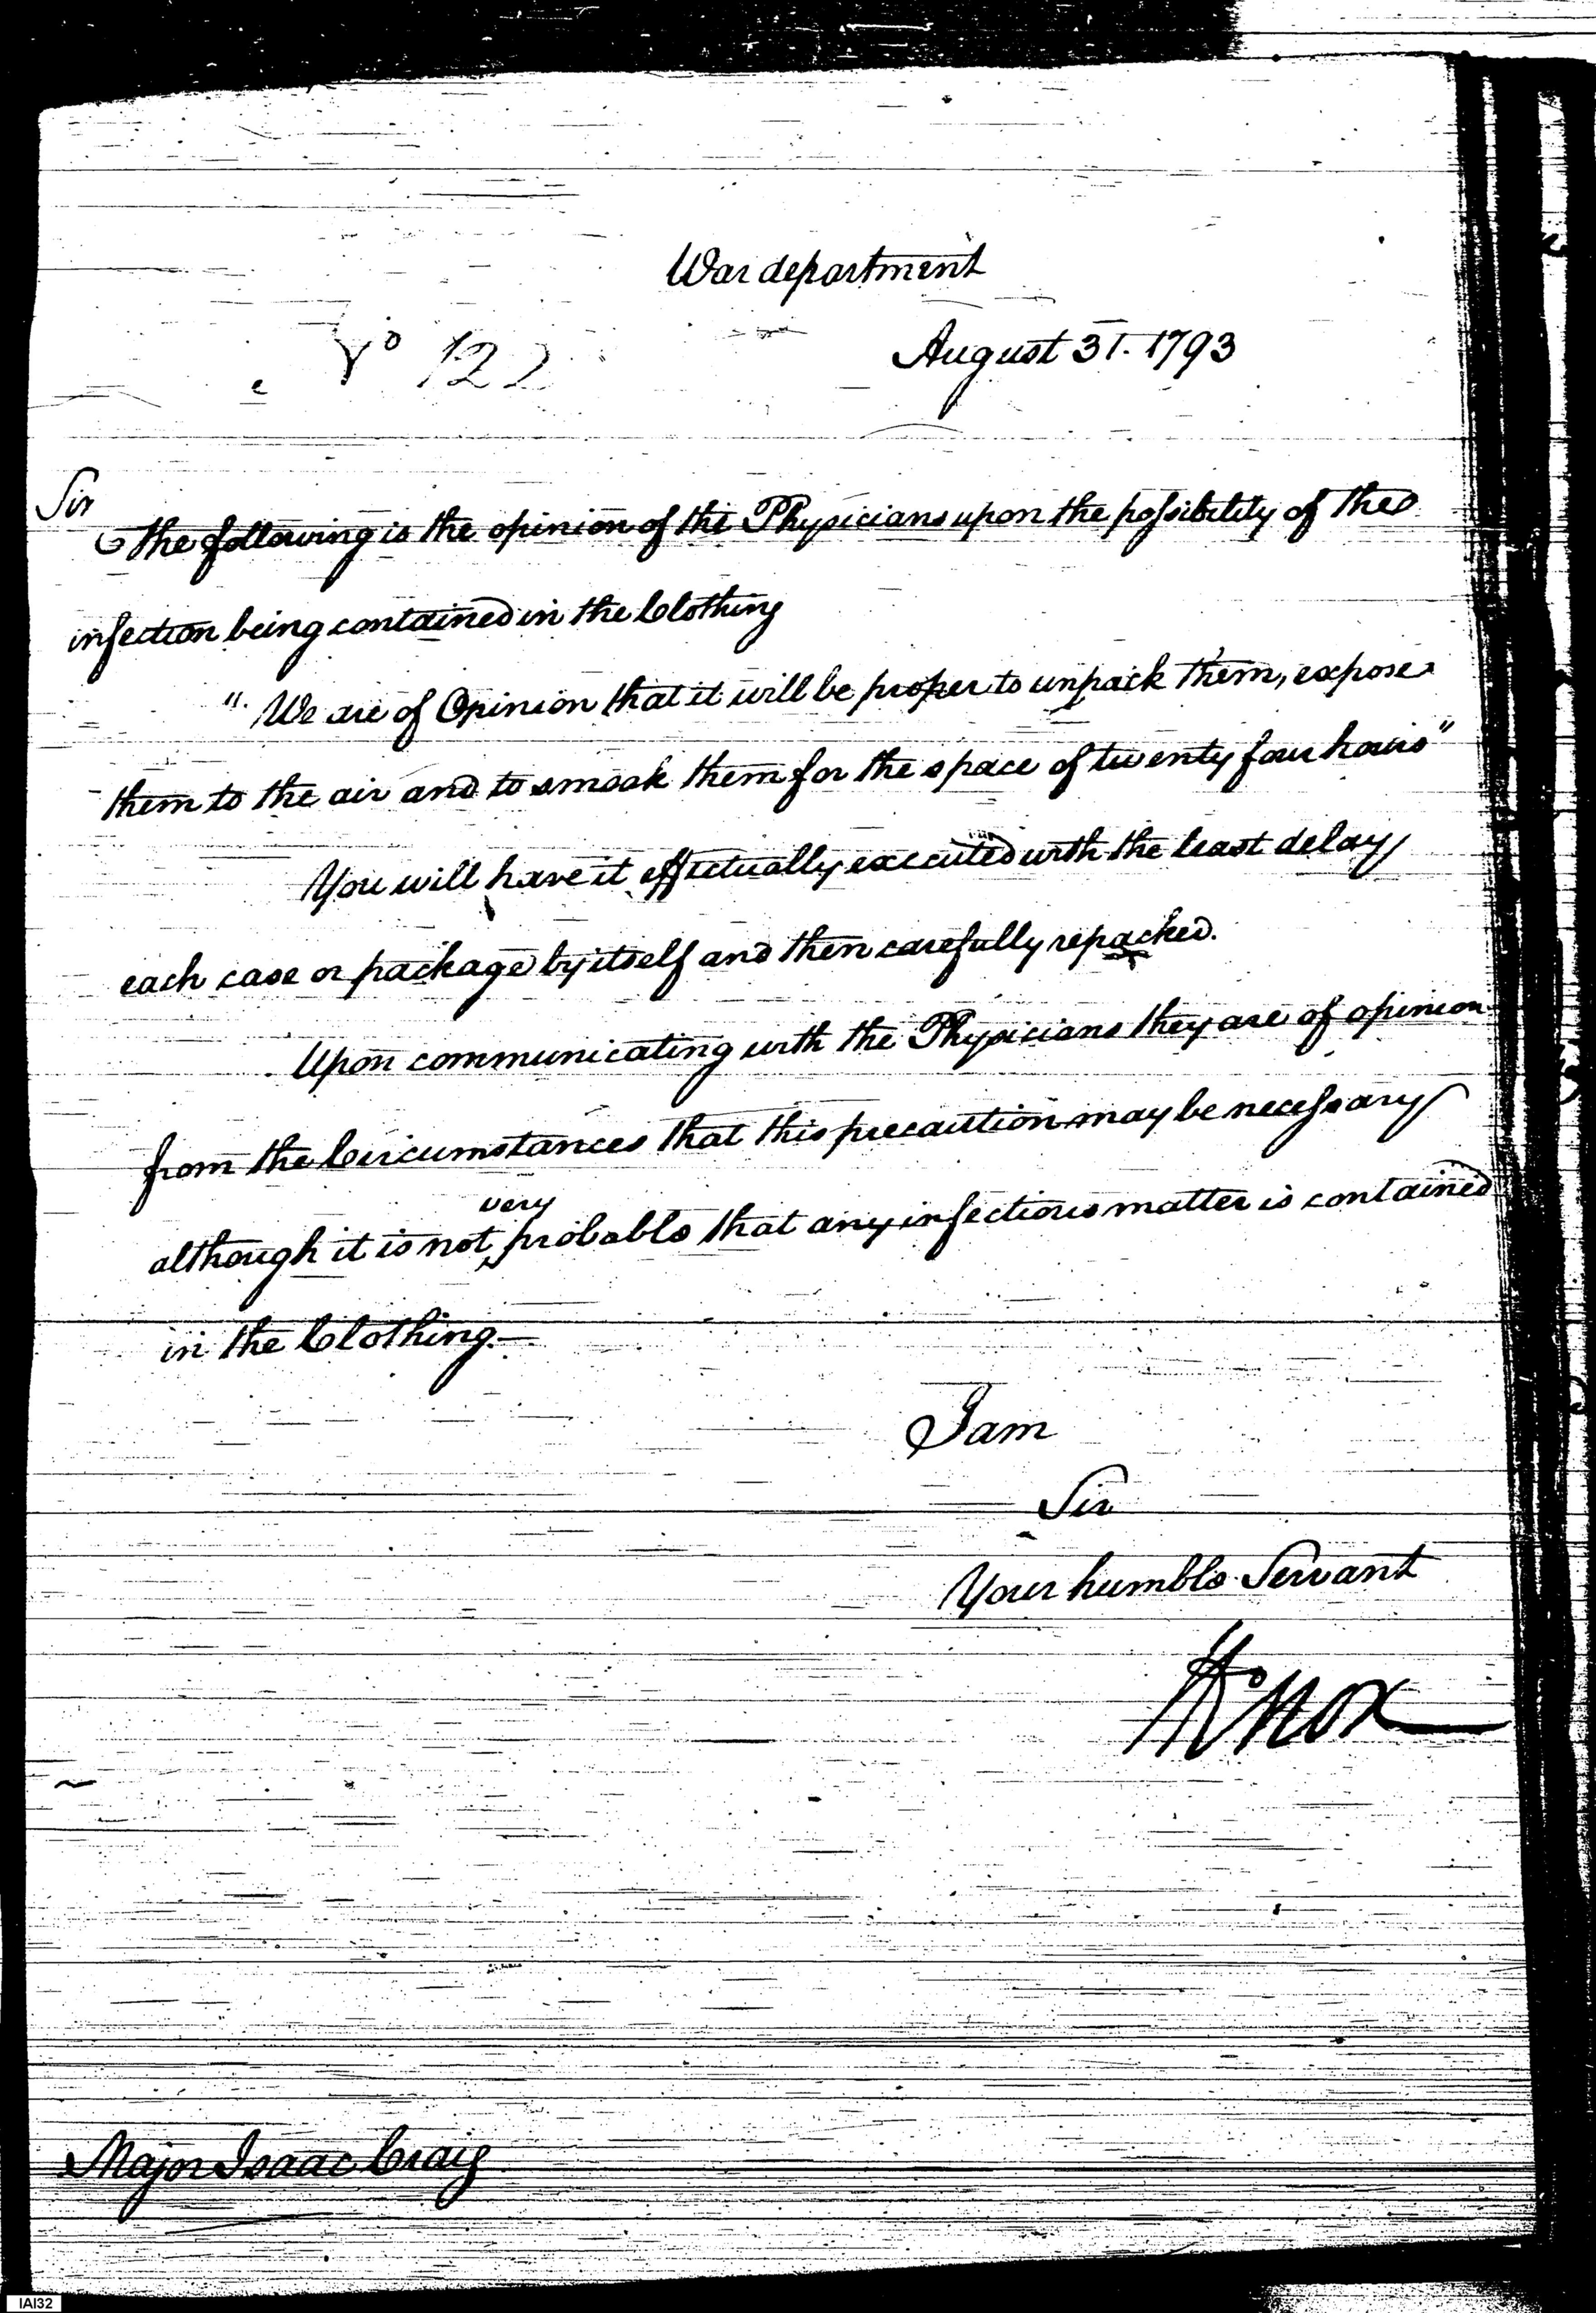 War department
No 122
August 31. 1793
Sir
The following is the opinion of the Physicians upon the possibility of the
infection being contained in the Clothing
"We are of Opinion that it will be proper to unpack them, expose
them to the air and to smoak them for the space of twenty four hours"
You will have it effectually executed with the least delay
each case or package by itself and then carefully repacked.
Upon communicating with the Physicians they are of opinion
from the Circumstances that this precaution may be necessary
very
although it is not probable that any infectious matter is contained
in the Clothing.—
I am
Sir
Your humble Servant
HKnox
Major Isaac Craig
IAI32